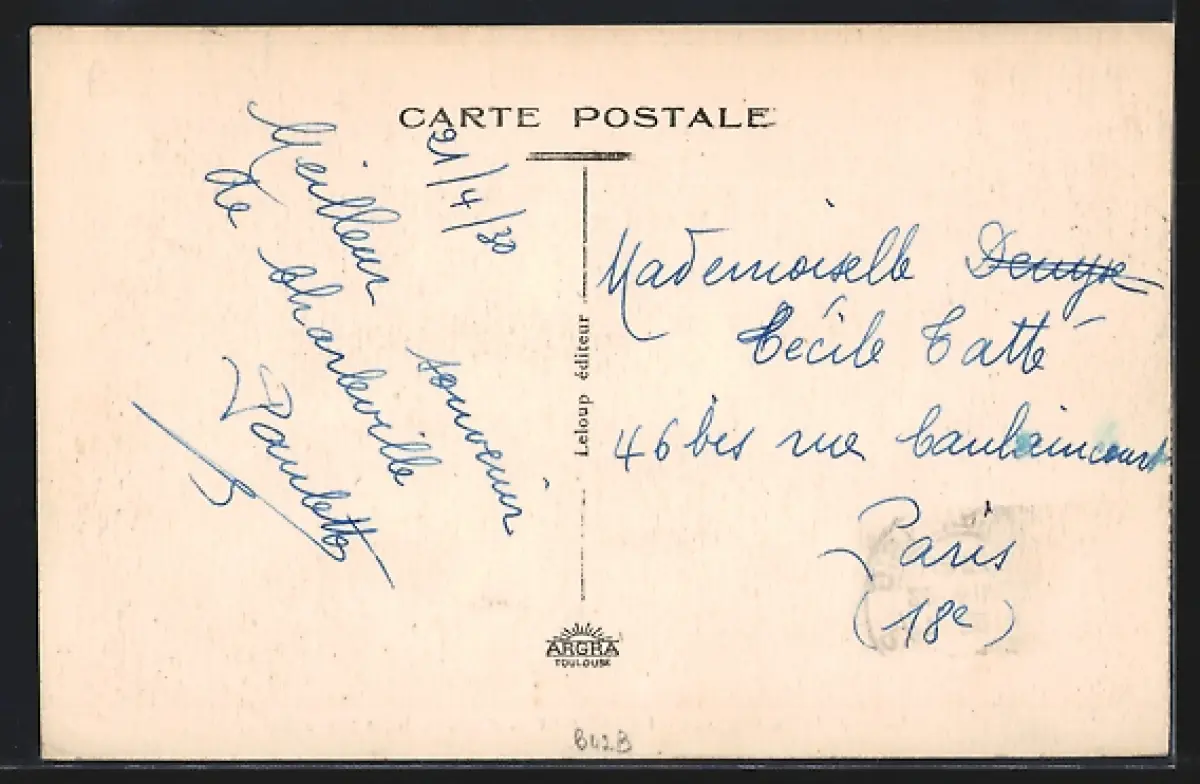 CARTE POSTALE
21/4/30
Meilleur souvenir
de Charleville
Paulette
Leloup éditeur
Mademoiselle Denyse
Cécile Tatté
46 bis rue Caulaincourt
Paris
(18e)
ARGRA
TOULOUSE
B42B